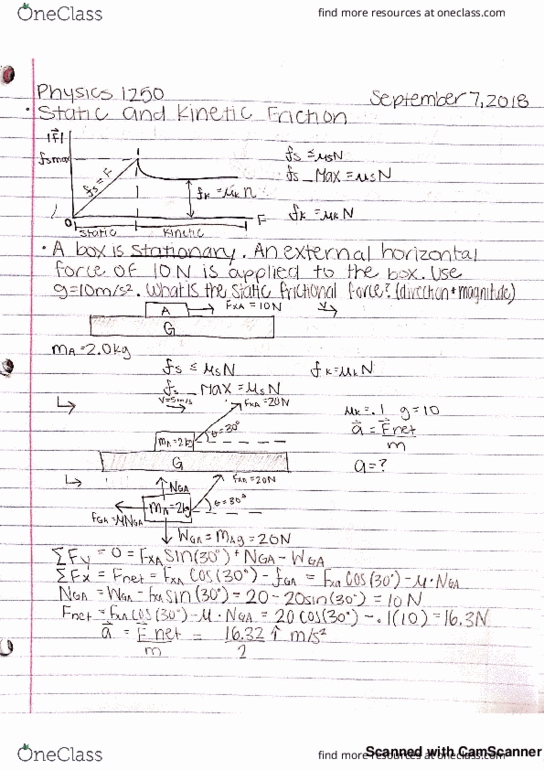 OneClass
find more resources at oneclass.com
Physics 1250
September 7, 2018
• Static and Kinetic Friction
|F⃗|
fsmax
fs = F
fk = μk n
0
F
static
kinetic
fs ≤ μsN
fs_Max = μsN
fk = μkN
• A box is stationary. An external horizontal
force of 10N is applied to the box. Use
g=10m/s². What is the static frictional force? (direction + magnitude)
A
FXA = 10N
V
G
mA = 2.0kg
fs ≤ μsN
fk = μkN
fs_Max = μsN
V=5m/s
FXA = 20N
θ = 30°
mA=2kg
G
μk = .1 g = 10
a⃗ = F net
m
a = ?
NGA
FXA = 20N
mA = 2kg
θ = 30°
FGA = μNGA
WGA = mAg = 20N
ΣFy = 0 = FXA sin(30°) + NGA - WGA
ΣFx = Fnet = FXA cos(30°) - fGA = FXA cos(30°) - μ·NGA
NGA = WGA - FXA sin(30°) = 20 - 20sin(30°) = 10N
Fnet = FXA cos(30°) - μ·NGA = 20 cos(30°) - .1(10) = 16.3N
a⃗ = F net = 16.32 î m/s²
m 2
OneClass
find more resources at oneclass.com
Scanned with CamScanner